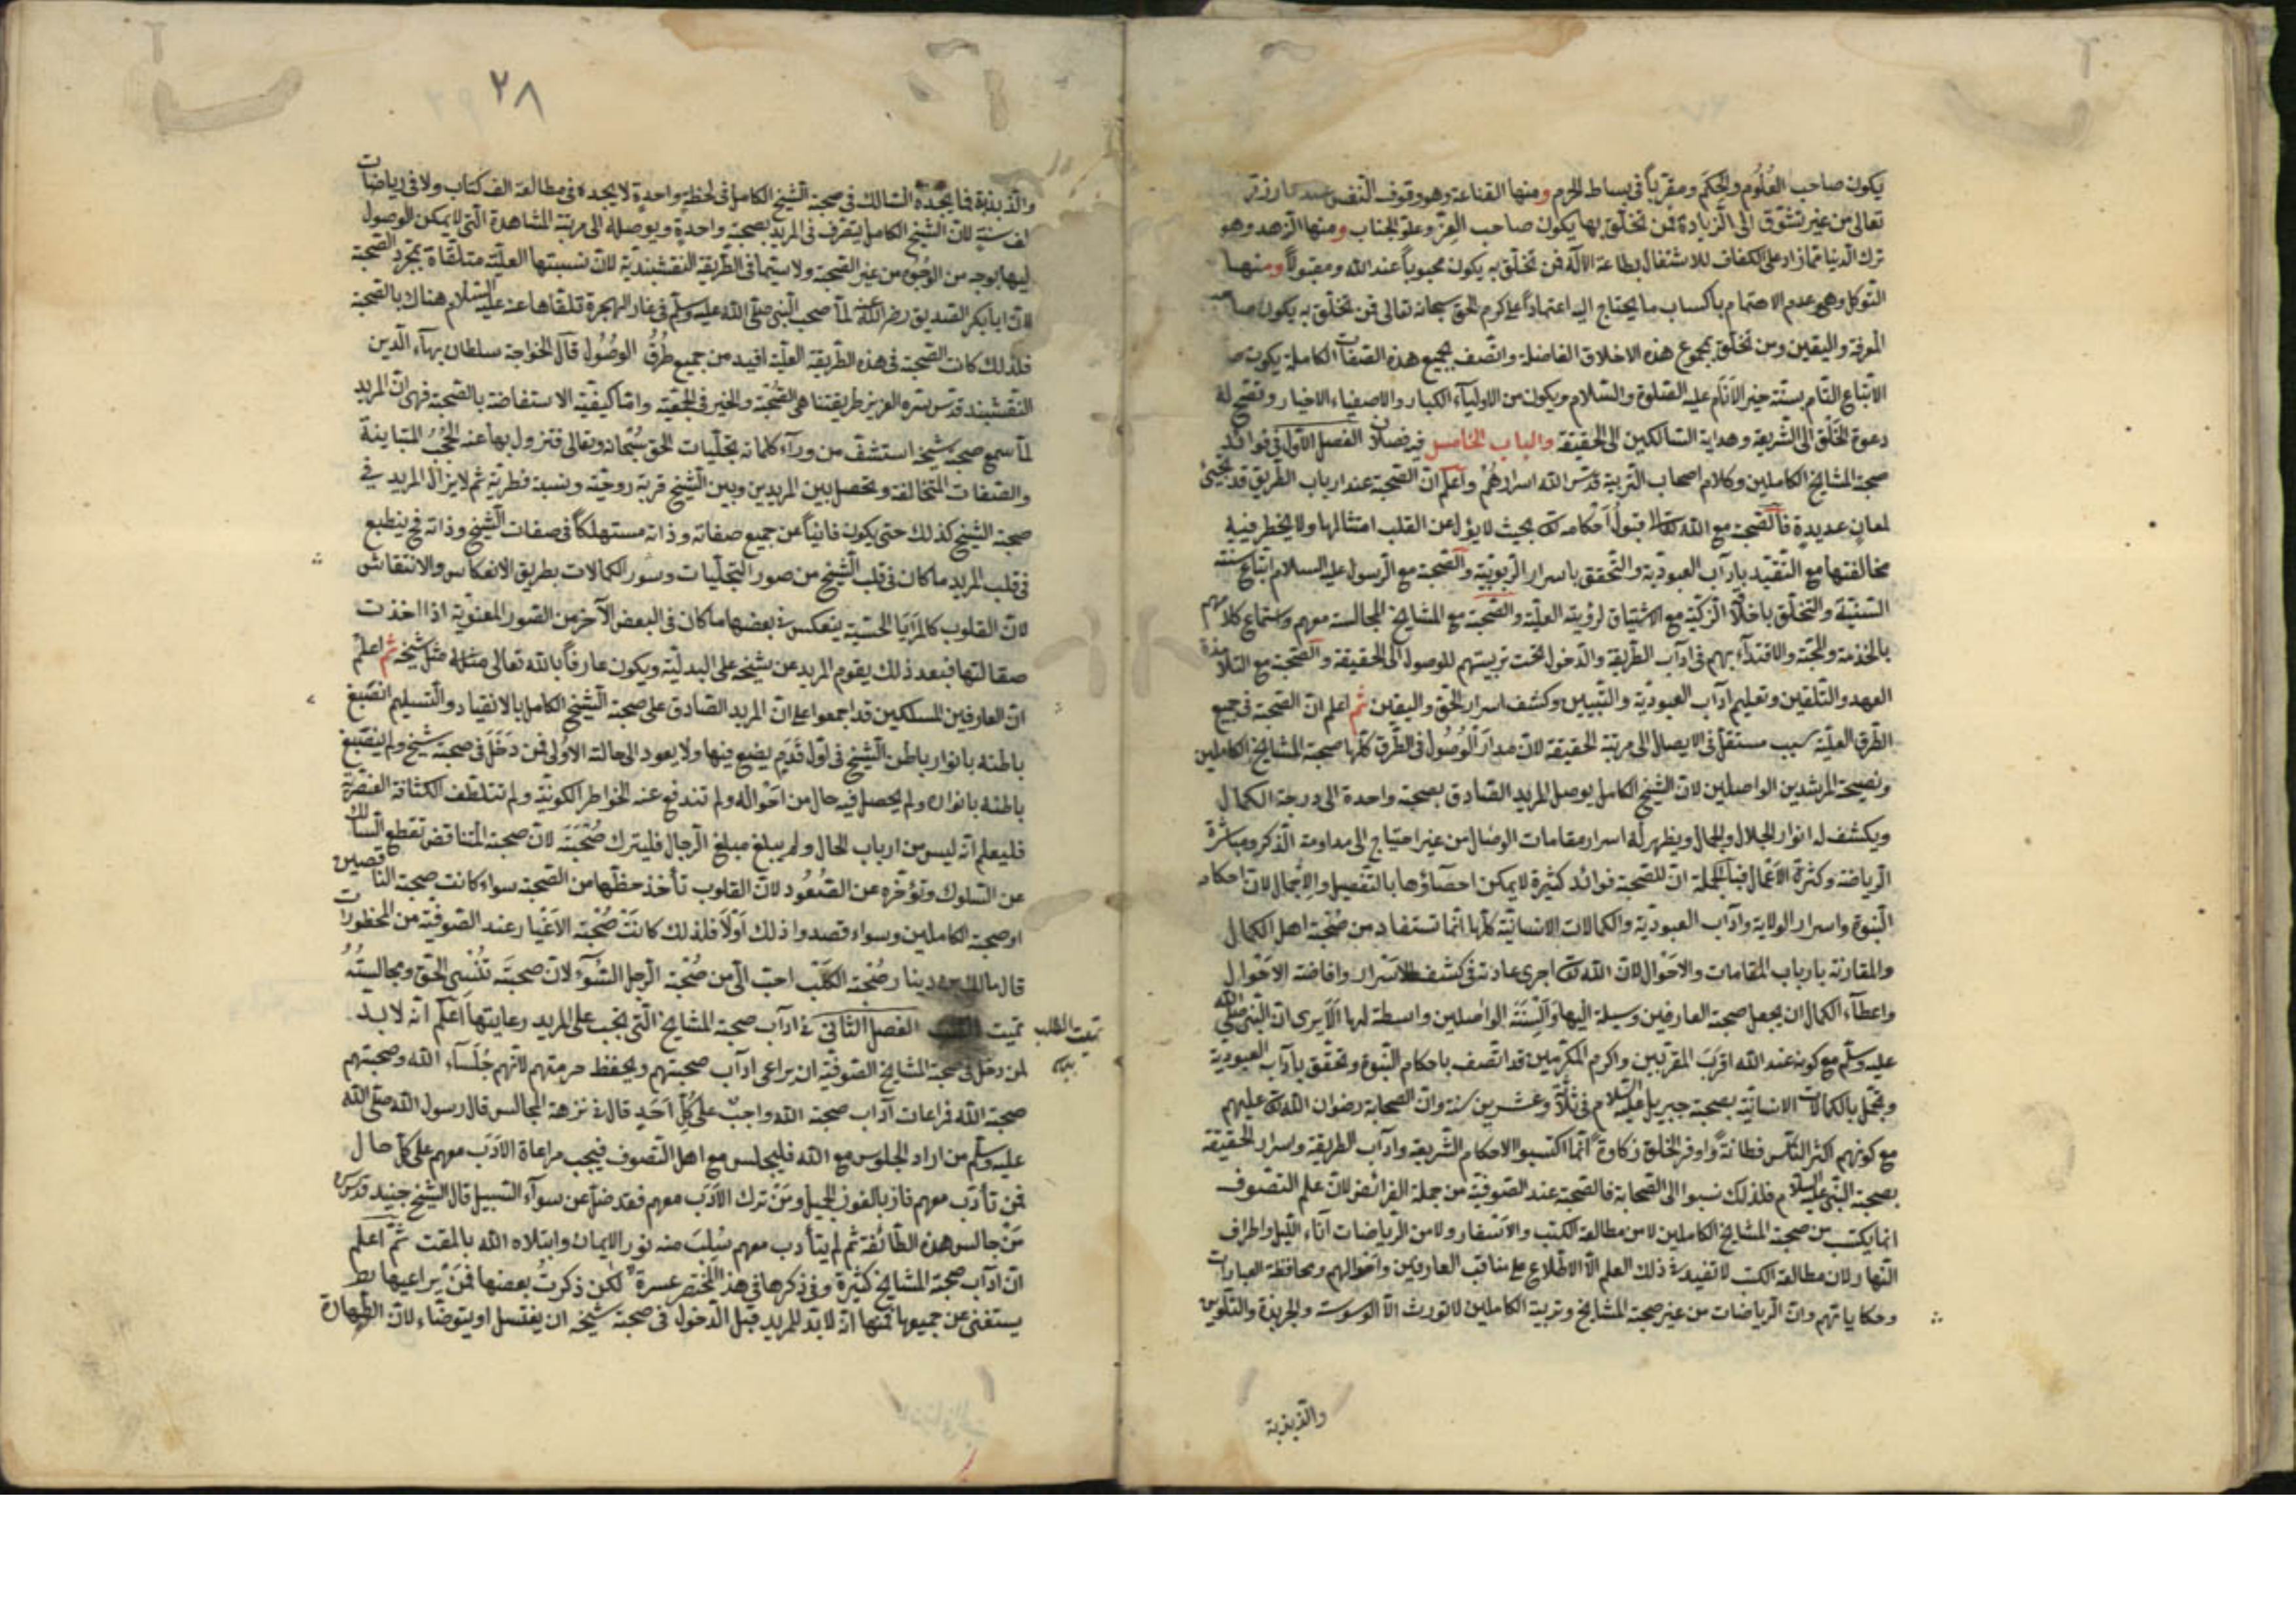 يكون صاحب العُلُوم والحِكَم ومقرّباً فى بساط الحرم ومنها القناعة وهو وقوف النّفس عند ما رزق
تعالى من غير تشوّق الى الزّيادة فمن تخلّق بها يكون صاحب العِزّ وعلوّ الجناب ومنها الزّهد وهو
ترك الدّنيا ممّا زاد على الكفاف للاشتغال بطاعة الآله فمن تخلّق به يكون محبوباً عند الله ومقبولاً ومنها
التّوكل وهى عدم الاهتمام باكساب ما يحتاج اليه اعتماداً على كرم الحق سبحانه تعالى فمن تخلّق به يكون صاحب
المعرفة واليقين ومن تخلّق بمجموع هذه الاخلاق الفاضلة واتّصف بجميع هذه الصّفات الكاملة يكون
الاتّباع التّام بسنّة خير الاَنَام عليه الصّلوة والسّلام ويكون من الاوليآء الكبار والاصفياء الاخيار وتفتح له
دعوة الخَلَق الى الشّريعة وهداية السّالكين الى الحقيقة والباب الخامس فيه فصلان الفصل الاوّل فى فوائد
صحبة المشايخ الكاملين وكلام اصحاب التّربية قدّس الله اسرارهُمْ واَعلم انّ الصّحبة عند ارباب الطّريق قد تجيئ
لمعانٍ عديدةٍ فالصّحبة مع الله تعالى قبولُ اَحْكامه تعالى بحيث لا يؤل عن القلب امتثالها ولا يخطر فيه
مخالفتها مع التّقيّد بآداب العبوديّة والتّحقق باسرار الرّبوبيّة والصّحبة مع الرّسول عليه السلام اتّباع سنّته
السّنيّة والتخلّق باخلاقه الزّكيّة مع الاشتياق لرؤيته العليّة والصّحبة مع المشايخ المجالسة معهم واستماع كلامهم
بالخدمة والمحبّة والاقتدآء بهم فى آداب الطّريقة والدّخول تحت تربيتهم للوصول الى الحقيقة والصّحبة مع التّلامذة
العهد والتّلقين وتعليم ادآب العبوديّة والتّبيين وكشف اسرار الحقّ واليقين ثم اعلم انّ الصّحبة فى جميع
الطّرق العليّة سبب مستقلّ فى الايصال الى مرتبة الحقيقة لانّ مدارَ الوُصُول فى الطّرق كلّها صحبة المشايخ الكاملين
ونصيحة المرشدين الواصلين لانّ الشّيخ الكامل يوصل المريد الصّادق بصحبة واحدة الى درجة الكمال
ويكشف له انوار الجلال والجمال ويظهر له اسرار مقامات الوصال من غير احتياج الى مداومة الذّكر ومباشرة
الرياضة وكثرة الاَعْمال فبالجملة انّ للصّحبة فوائد كثيرة لا يمكن احصاؤها بالتّفصيل والاِجْمال لانّ احكام
النّبوة واسرار الولاية وادآب العبوديّة والكمالات الانسانيّة كلّها انّما تستفاد من صُحْبَة اهل الكمال
والمقارنة بارباب المقامات والاحْوال لانّ الله تعالى اجرى عادته فى كشف الاَسْرار وافاضة الاَحْوال
واعطآء الكمال ان يجعل صحبة العارفين وسيلة اليها واَلْسِنَةَ الواصلين واسطة لها اَلَا يَرى انّ النّبى صلّى الله
عليه وسلّم مع كونه عند الله اقربَ المقرّبين واكرم المكرّمين قد اتّصف باحكام النّبوة وتحقّق بآداب العبودية
وتجمّل بالكمالات الانسانيّة بصحبة جبريل عليه السّلام فى ثلاثة وعشرين سنة وانّ الصّحابة رضوان الله تعالى عليهم
مع كونهم اكثر النّاس فطانةً واوفر الخلق زكاوةً انّما اكتسبوا الاحكام الشّريعة وادآب الطريقة واسرار الحقيقة
بصحبة النّبى عليه السّلام فلذلك نسبوا الى الصّحابة فالصّحبة عند الصّوفيّة من جملة الفرائض لانّ علم التصّوف
انما يكتسب من صحبة المشايخ الكاملين لا من مطالعة الكتب والاَسْفار ولا من الرّياضات آناء اللّيل واطراف
النّهار ولانّ مطالعة الكتب لا تفيد فى ذلك العلم الّا الاطّلاع على مناقب العارفين واحوالهم ومحافظة العبارات
وحكاياتهم وانّ الرّياضات من غير صحبة المشايخ وتربية الكاملين لا تورث الّا الوسوسة والجربذة والتّلوين
والذبذبة
٢٨
والذّبذبة فما يجده السّالك فى صحبة الشّيخ الكامل فى لحظةٍ واحدةٍ لا يجده فى مطالعة الف كتاب ولا فى رياضات
الف سنةٍ لانّ الشّيخ الكامل يتصرّف فى المريد بصحبة واحدةٍ ويوصله الى مرتبة المشاهدة الّتى لا يمكن الوصول
اليها بوجه من الوجُوه من غير الصّحبة ولا سيّما فى الطّريقة النّقشبنديّة لانّ نسبتها العليّة متلقّاة بمجرّد الصّحبة
لانّ ابا بكر الصّديق رضى الله عنه لمّا صحب النّبى صلّى الله عليه وسلّم فى غار الهجرة تلقّاها عنه عليه السّلام هناك بالصّحبة
فلذلك كانت الصّحبة فى هذه الطّريقة العليّة افيد من جميع طُرُق الوصُول قال الخواجة سلطان بهآء الدّين
النّقشبند قدّس سرّه العزيز طريقتنا هى الصُّحْبَة والخير فى الجمعيّة وامّا كيفيّة الاستفاضة بالصّحبة فهى انّ المريد
لمّا سمع صحبة شيخه استشفّ من ورآء كلماته تجلّيات الحق سُبحانه وتعالى فتزول بها عنه الحُجُبُ المتباينة
والصّفات المتخالفة وتحصل بين المريدين وبين الشّيخ قربة روحيّة ونسبة فطريّة ثم لا يزال المريد فى
صحبة الشّيخ كذلك حتى يكون فانياً عن جميع صفاته وذاته مستهلكاً فى صفات الشّيخ وذاته فح ينطبع
فى قلب المريد ما كان فى قلب الشّيخ من صور التّجلّيات وسور الكمالات بطريق الانعكاس والانتقاش
لانّ القلوب كالمرَايَا الحسّيّة ينعكس فى بعضها ما كان فى البعض الآخر من الصّور المعنويّة اذا اخذت
صقالتها فبعد ذلك يقوم المريد عن شيخه على البدليّة ويكون عارفاً بالله تعالى مثل شيخه ثم اعلم
انّ العارفين المسلكين قد اجمعوا على انّ المريد الصّادق على صحبة الشّيخ الكامل بالانقياد والتّسليم انصبغ
باطنه بانوار باطن الشّيخ فى اوّل قَدَمٍ يضع فيها ولا يعود الى حالة الاولى فمن دَخَلَ فى صحبة شيخ ولم ينصبغ
باطنه بانواره ولم يحصل فيه حال من احْواله ولم تندفع عنه الخواطر الكونيّة ولم تتلطّف الكثافة العنصريّة
فليعلم انّه ليس من ارباب الحال ولم يبلغ مبلغ الرّجال فليترك صُحْبَتَه لانّ صحبة المتناقض تقطع السّالك
عن السّلوك وتؤخّره عن الصّعُود لانّ القلوب تأخذ حظّها من الصّحبة سواء كانت صحبة الناقصين
او صحبة الكاملين وسواء قصدوا ذلك اَوْلَا فلذلك كانَتْ صُحْبَة الاَغْيار عند الصّوفيّة من المحظورات
قال مالك بن دينار صُحْبَة الكَلْب احبّ الىّ من صُحْبَة الرّجل السّوْء لانّ صحبتَه تُنْسِى الحَقّ ومجالستُهُ
تميت الفصل الثّانى فى ادآب صحبة المشايخ الّتى تجب على المريد رعايتها اَعْلم انّه لا بدّ
تميت القلب
لمن دخل فى صحبة المشايخ الصّوفيّة ان يراعى ادآب صحبتهم ويحفظ حرمتهم لانّهم جُلَسَآء الله وصحبتهم
صحبة الله فمراعات آداب صحبة الله واجبٌ على كلّ اَحَدٍ قال فى نزهة المجالس قال رسول الله صلّى الله
عليه وسلّم من اراد الجلوس مع الله فليجلس مع اهل التّصوف فيجب مراعاة الاَدَب معهم على كلّ حال
فمن تأدّب معهم فاز بالفوز الجميل ومَنْ ترك الاَدَب معهم فقد ضلّ عن سوآء السّبيل قال الشّيخ جنيد قدّس سرّه
مَنْ جالس هذه الطّائفة ثم لم يتأدب معهم سُلِبَ منه نور الايمان وابتلاه الله بالمقت ثمّ اعلم
انّ ادآب صحبة المشايخ كثيرة وفى ذكرها فى هذا المختصر عسرة لكن ذكرتُ بعضها فمَنْ يراعيها
يستغنى عن جميعها فمنها انّه لا بدّ للمريد قبل الدّخول فى صحبة شيخه ان يغتسل او يتوضّاء لانّ الطّهارة